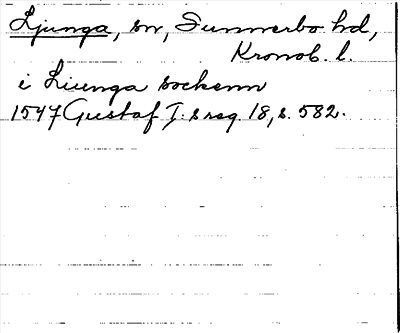 Ljunga, sn, Sunnerbo hd,
Kronob. l.
i Liunga sockenn
1547 Gustaf I:s reg. 18, s. 582.